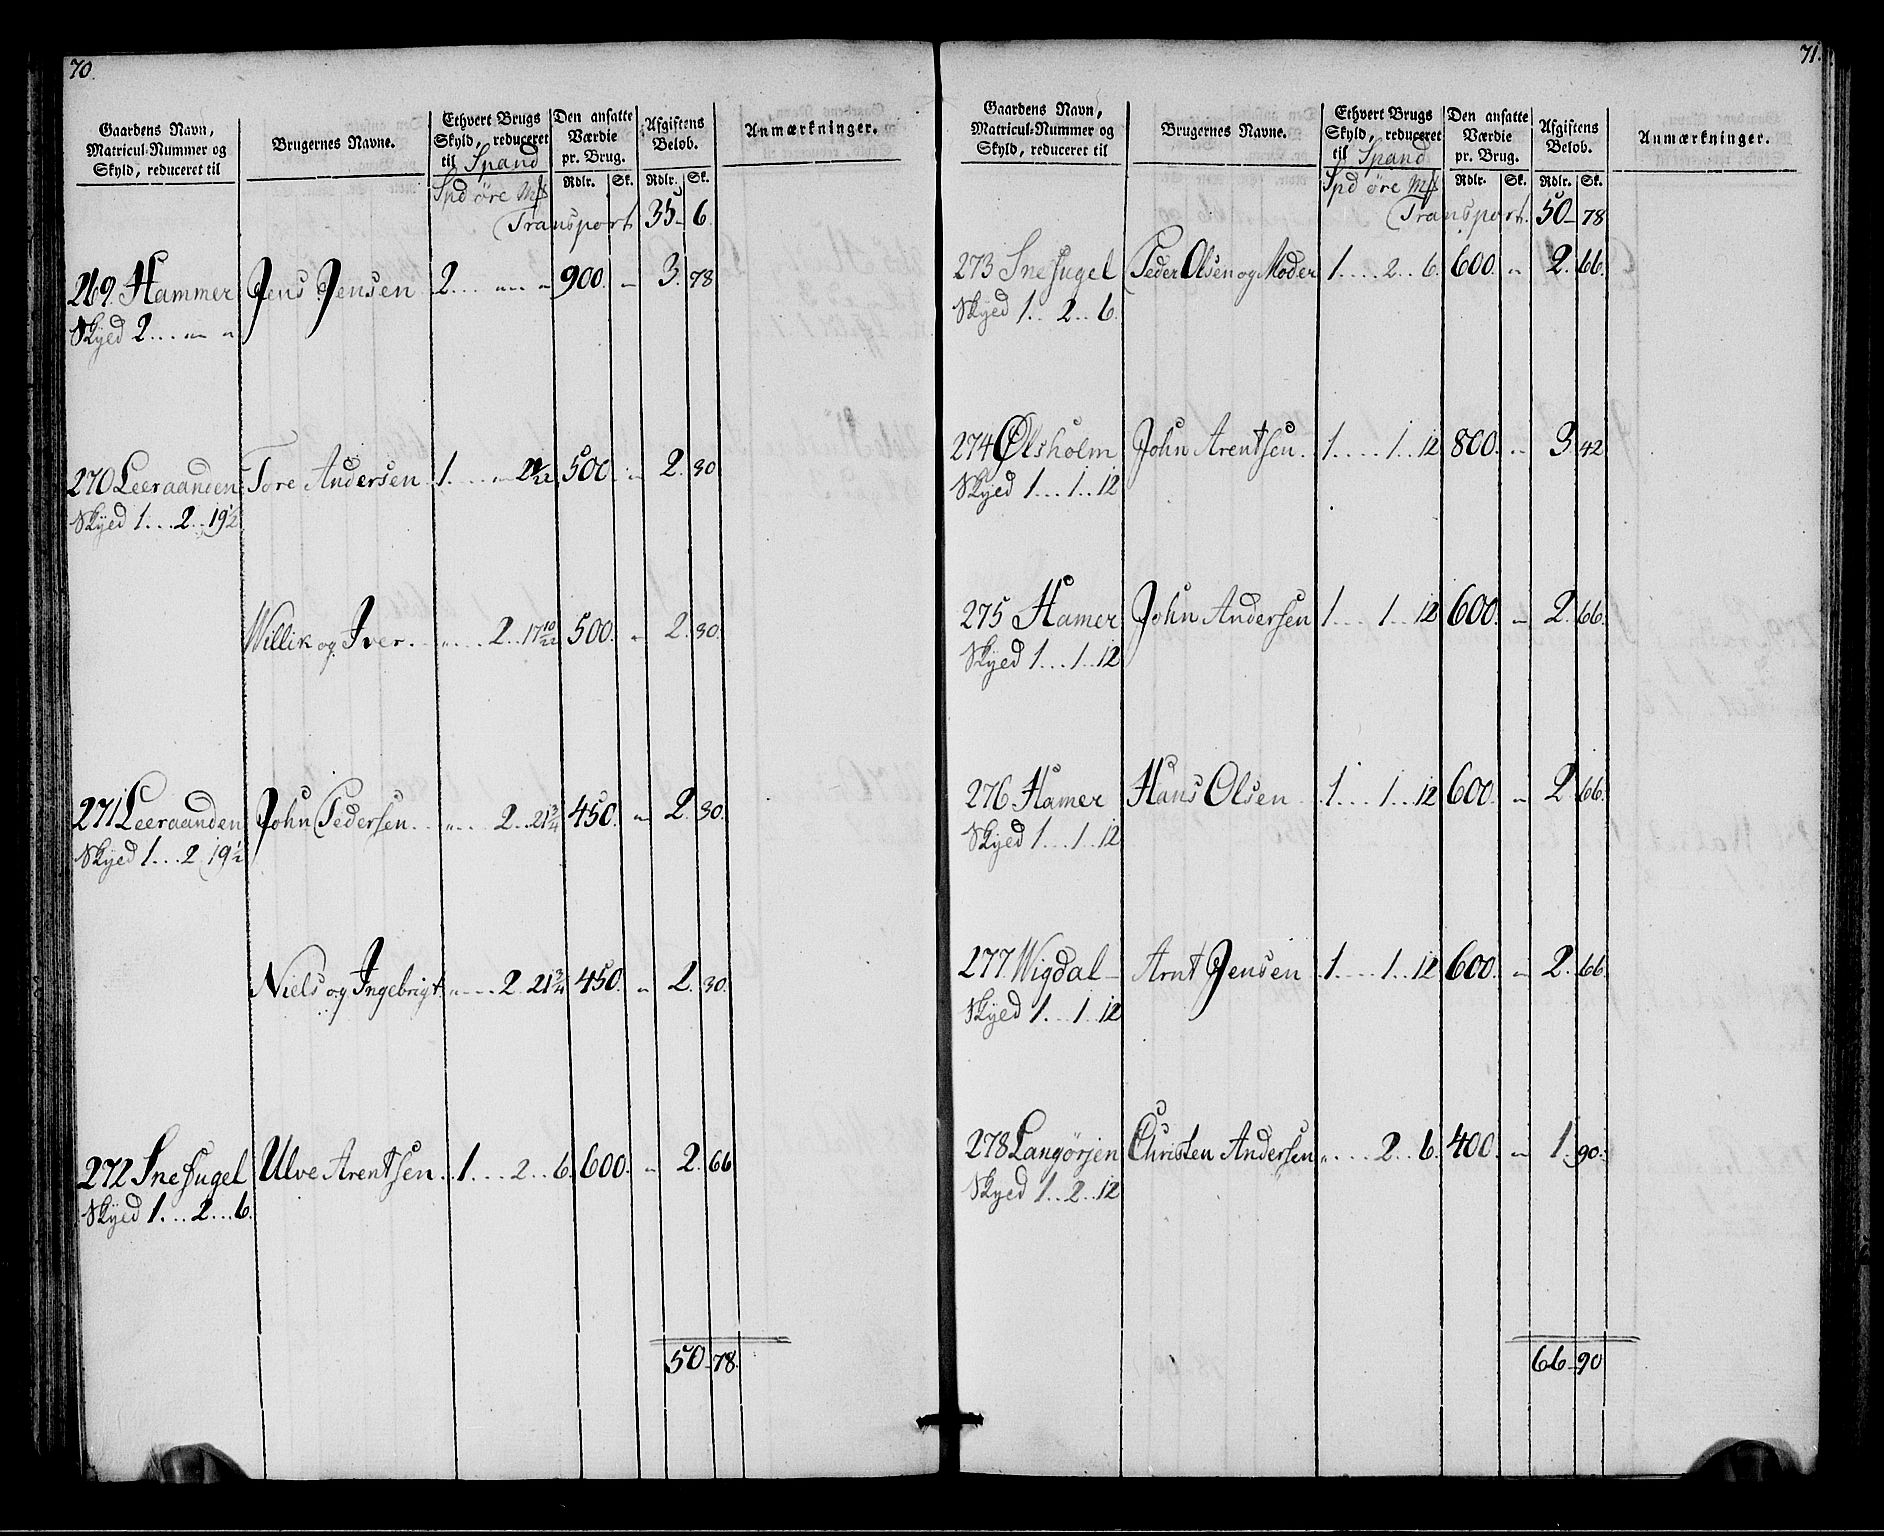 70.
Gaardens Navn, Matricul-Nummer og Skyld, reduceret til
Brugernes Navne.
Ethvert Brugs Skyld, reduceret til Spand
Den ansatte Værdie pr. Brug.
Afgiftens Beløb.
Anmærkninger.
Rdlr. Sk. Rdlr. Sk.
Spd øre Mk
Transport 35 - 6.
269. Hammer Jens Jensen 2... „ „ 900. „ 3. 78
Skyed 2... „ „
270 Leeraanden Tore Andersen 1.... „ 500. „ 2. 30
Skÿed 1... 2.. 19½
Willik og Iver. . „.... 2.. 17 10/22 500. „ 2. 30.
271 Leeraanden John Pedersen. . „... 2.. 21¾ 450. „ 2. 30.
Skyed 1... 2 19½
Niels og Ingebrigt „.... 2. 21¾ 450. „ 2. 30.
272 Snefugel Ulve Arentsen. . 1.... 2.. 6. 600. „ 2. 66
Skÿed 1... 2... 6.
50 - 78.
71.
Gaardens Navn, Matricul-Nummer og Skyld, reduceret til
Brugernes Navne.
Ethvert Brugs Skyld, reduceret til Spand
Den ansatte Værdie pr. Brug.
Afgiftens Beløb.
Anmærkninger.
Rdlr. Sk. Rdlr. Sk.
Spd øre Mk
Transport. 50 - 78
273 Snefugel Peder Olsen og Moder 1.... 2.. 6. 600. „ 2. 66.
Skyed 1.. 2.. 6.
274 Ølsholm John Arentsen. 1..... 1.. 12 800. „ 3. 42
Skyed 1... 1... 12
275 Hamer John Andersen 1.... 1... 12 600. „ 2. 66.
Skyed 1... 1... 12
276 Hamer Hans Olsen 1.... 1... 12 600. „ 2. 66.
Skyed 1... 1.. 12
277. Wigdal Arnt Jensen 1..... 1.. 12 600. „ 2. 66
Skyed 1... 1.. 12
278 Langørjen Christen Andersen „.... 2.. 6. 400. „ 1. 90.
Skyed 1.. 2... 12
66 - 90